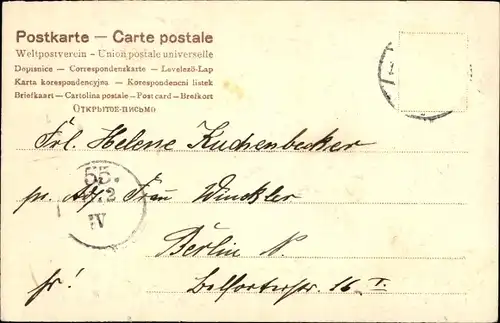 Postkarte — Carte postale
Weltpostverein – Union postale universelle
Dopisnice — Correspondenskarte — Levelező-Lap
Karta korespondencyjna — Korespondencni listek
Briefkaart – Cartolina postale – Post card – Brefkort
Открытое-письмо
Frl. Helene Kuchenbecker
55.
pr. Adr. Frau Winckler
2
IV
Berlin N.
fr! Belforterstr. 16 I.